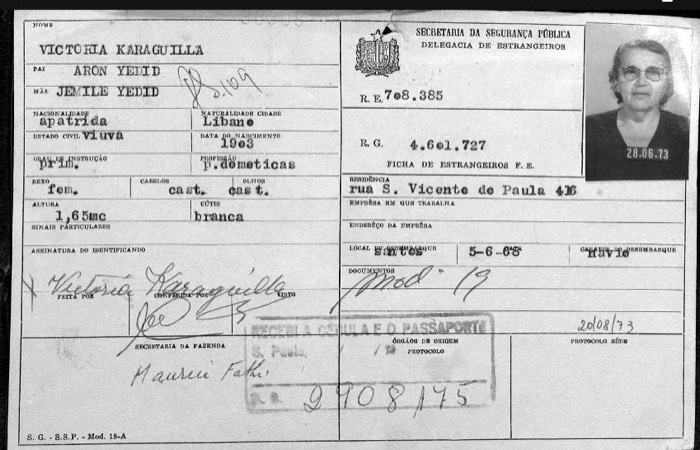 NOME
VICTORIA KARAGUILLA
PAI ARON YEDID
MÃE JEMILE YEDID
NACIONALIDADE NATURALIDADE CIDADE
apatrida Libano
ESTADO CIVIL viuva DATA DO NASCIMENTO
1903
GRAU DE INSTRUÇÃO PROFISSÃO
prim. p.dometicas
SEXO CABELOS OLHOS
fem. cast. cast.
ALTURA CÚTIS
1,65mc branca
SINAIS PARTICULARES
ASSINATURA DO IDENTIFICANDO
Victoria Karaguilla
FEITA POR CONFERIDA POR VISTO
SECRETARIA DA FAZENDA
S. G. - S.S.P. - Mod. 18-A
SECRETARIA DA SEGURANÇA PÚBLICA
DELEGACIA DE ESTRANGEIROS
R. E. 708.385
R. G. 4.601.727
FICHA DE ESTRANGEIROS F. E.
28.06.73
RESIDÊNCIA
rua S. Vicente de Paula 416
EMPRÊSA EM QUE TRABALHA
ENDERÊÇO DA EMPRÊSA
LOCAL DO DESEMBARQUE DATA DO DESEMBARQUE
santos 5-6-68 Navio
DOCUMENTOS
mod - 19
20/08/73
ÓRGÃOS DE ORIGEM
PROTOCOLO
PROTOCOLO SÉDE
RECEBI A CÉDULA E O PASSAPORTE
S. Paulo,
2908/75